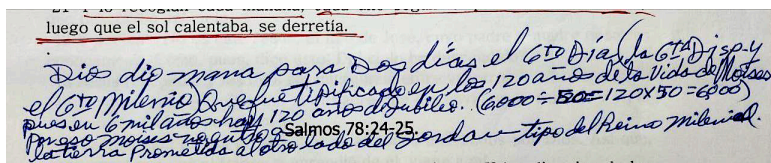 21 Y lo recogían cada mañana, cada uno según
luego que el sol calentaba, se derretía.
Dios dio mana para Dos días el 6to Día (la 6ta Disp. y
el 6to Milenio) Que fue tipificado en los 120 años de la Vida de Moises
pues en 6 mil años hay 120 años de Jubileo. (6,000 ÷ 50 = 120 x 50 = 6,000)
Por eso moises no entro a Salmos 78:24-25.
la tierra Prometida al otro lado del Jordan tipo del Reino Milenial.